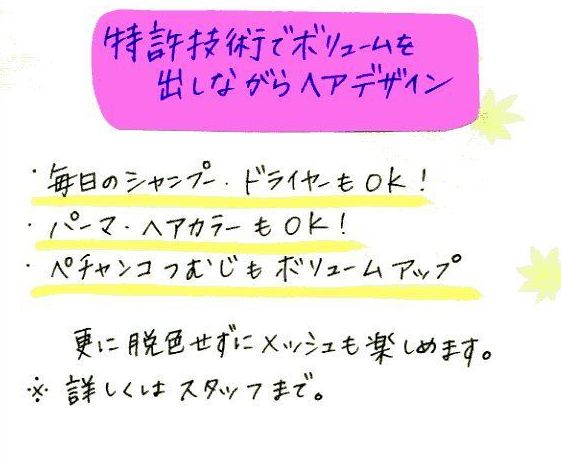 特許技術でボリュームを
出しながらヘアデザイン
・毎日のシャンプー・ドライヤーもOK!
・パーマ・ヘアカラーもOK!
・ペチャンコつむじもボリュームアップ
更に脱色せずにメッシュも楽しめます。
※詳しくはスタッフまで。